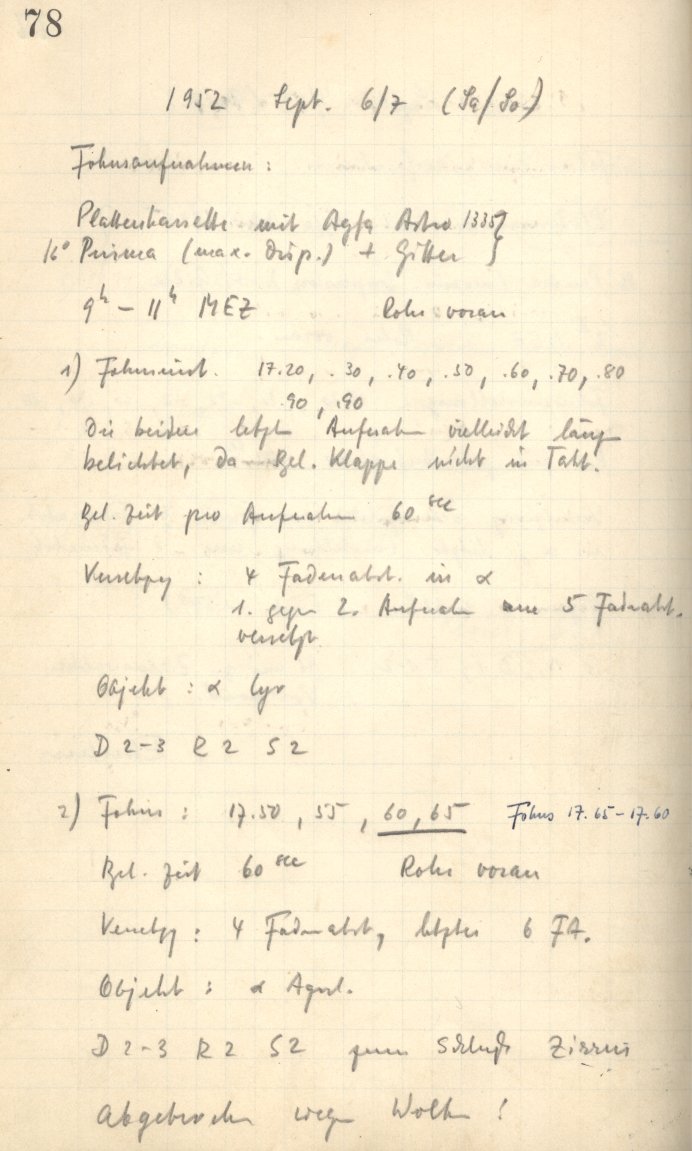 78
1952 Sept. 6/7 (Sa/So)
Fokusaufnahmen :
Plattenkassette mit Agfa Astro 1335 }
16° Prisma (max. Disp.) + Gitter }
9ʰ – 11ʰ MEZ Rohr voran
1) Fokus 17.20, .30, .40, .50, .60, .70, .80
.90, .90
Die beiden letzten Aufnahmen vielleicht länger
belichtet, da Bel. Klappe nicht in Takt.
Bel. Zeit pro Aufnahme 60 sec
Versetzung : 4 Fadenabst. in α
1. gegen 2. Aufnahme um 5 Fadenabst.
versetzt
Objekt : α Lyr
D 2-3 R 2 S 2
2) Fokus : 17.50, 55, 60, 65 Fokus 17.65 - 17.60
Bel. Zeit 60 sec Rohr voran
Versetzung : 4 Fadenabst, letztes 6 FA.
Objekt : α Aquil.
D 2-3 R 2 S 2 zum Schluß Zirrus
Abgebrochen wegen Wolken !